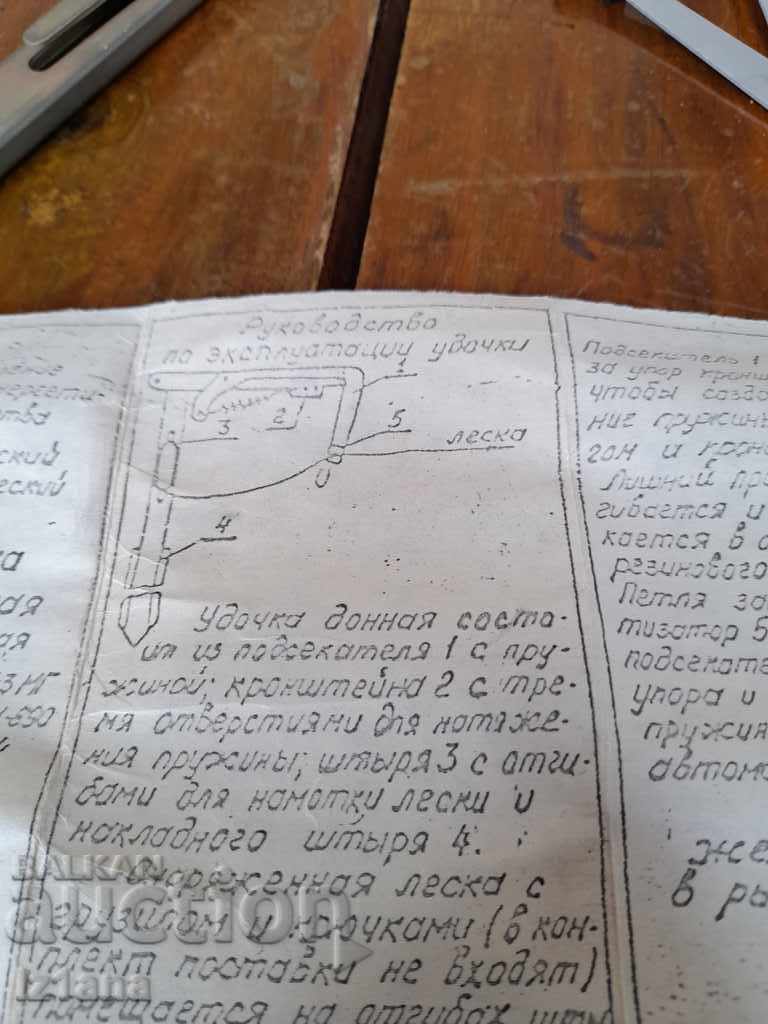 ский
еский
ка
ная
ая
Руководство
по эксплуатации удочки
1
2
3
5
леска
4
Удочка донная состо-
ит из подсекателя 1 с пру-
жиной; кронштейна 2 с тре-
мя отверстиями для натяже-
ния пружины; штыря 3 с отги-
бами для намотки лески и
накладного штыря 4.
Снаряженная леска с
грузилом и крючками (в ком-
плект поставки не входят)
помещается на отгибах шты
Подсекатель 1
за упор кронш
чтобы созда
ние пружин
гом и крон
Лишний пр
гивается и
кается в о
резинового
Петля за
тизатор 5
подсекате
упора и
пружин
автома
же
в ры
BALKAN
auction
Izlana